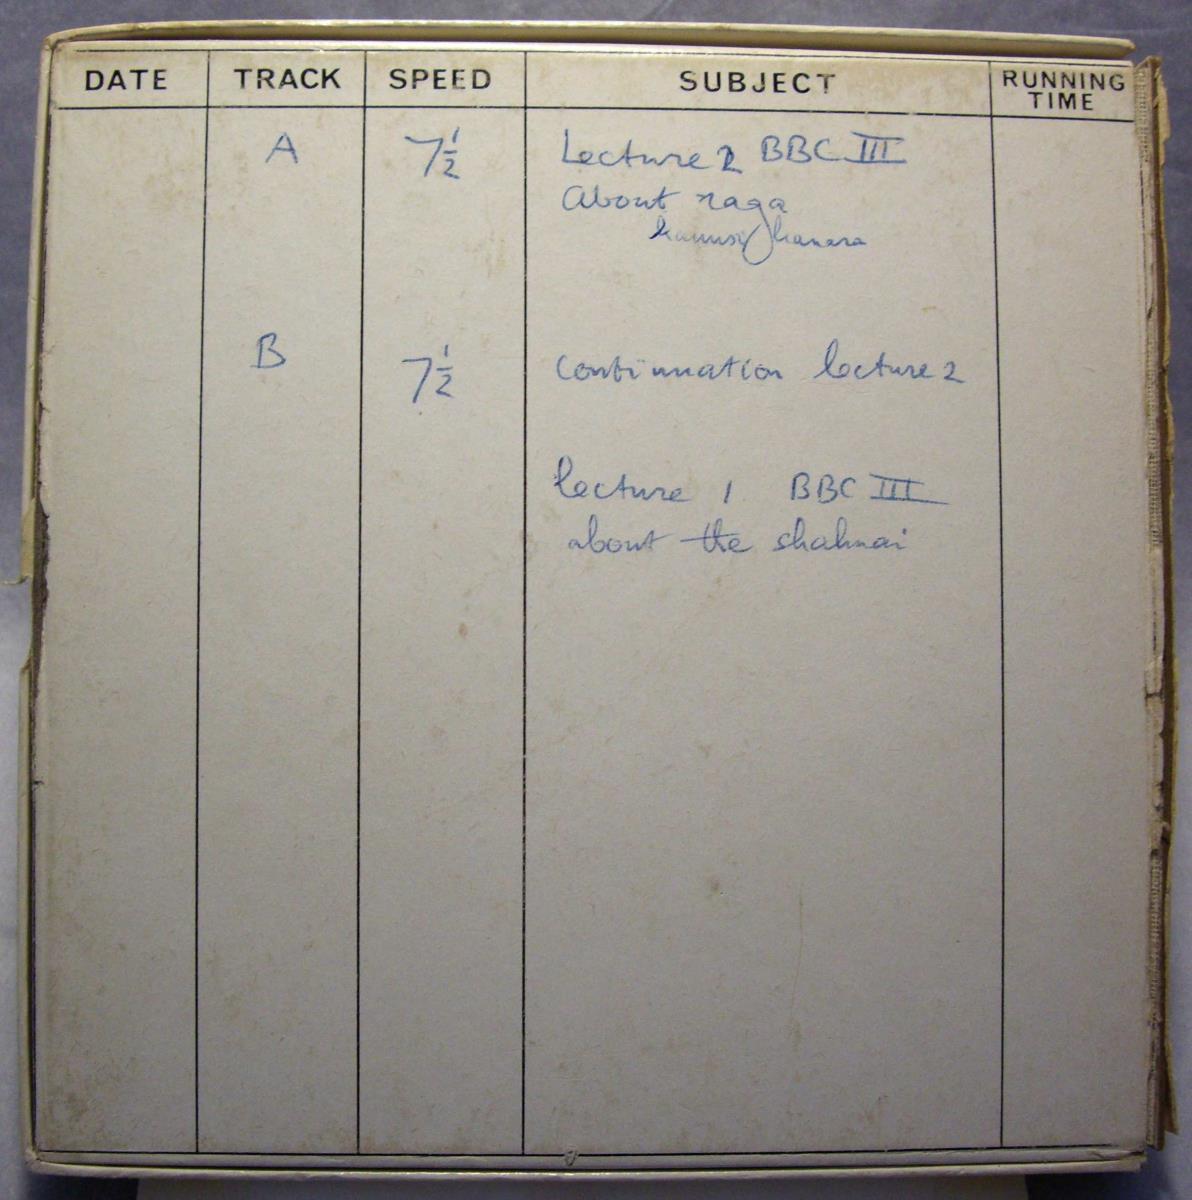 DATE TRACK SPEED SUBJECT RUNNING TIME
A 7½ Lecture 2 BBC III
About raga
kanara
B 7½ continuation lecture 2
lecture 1 BBC III
about the shahnai